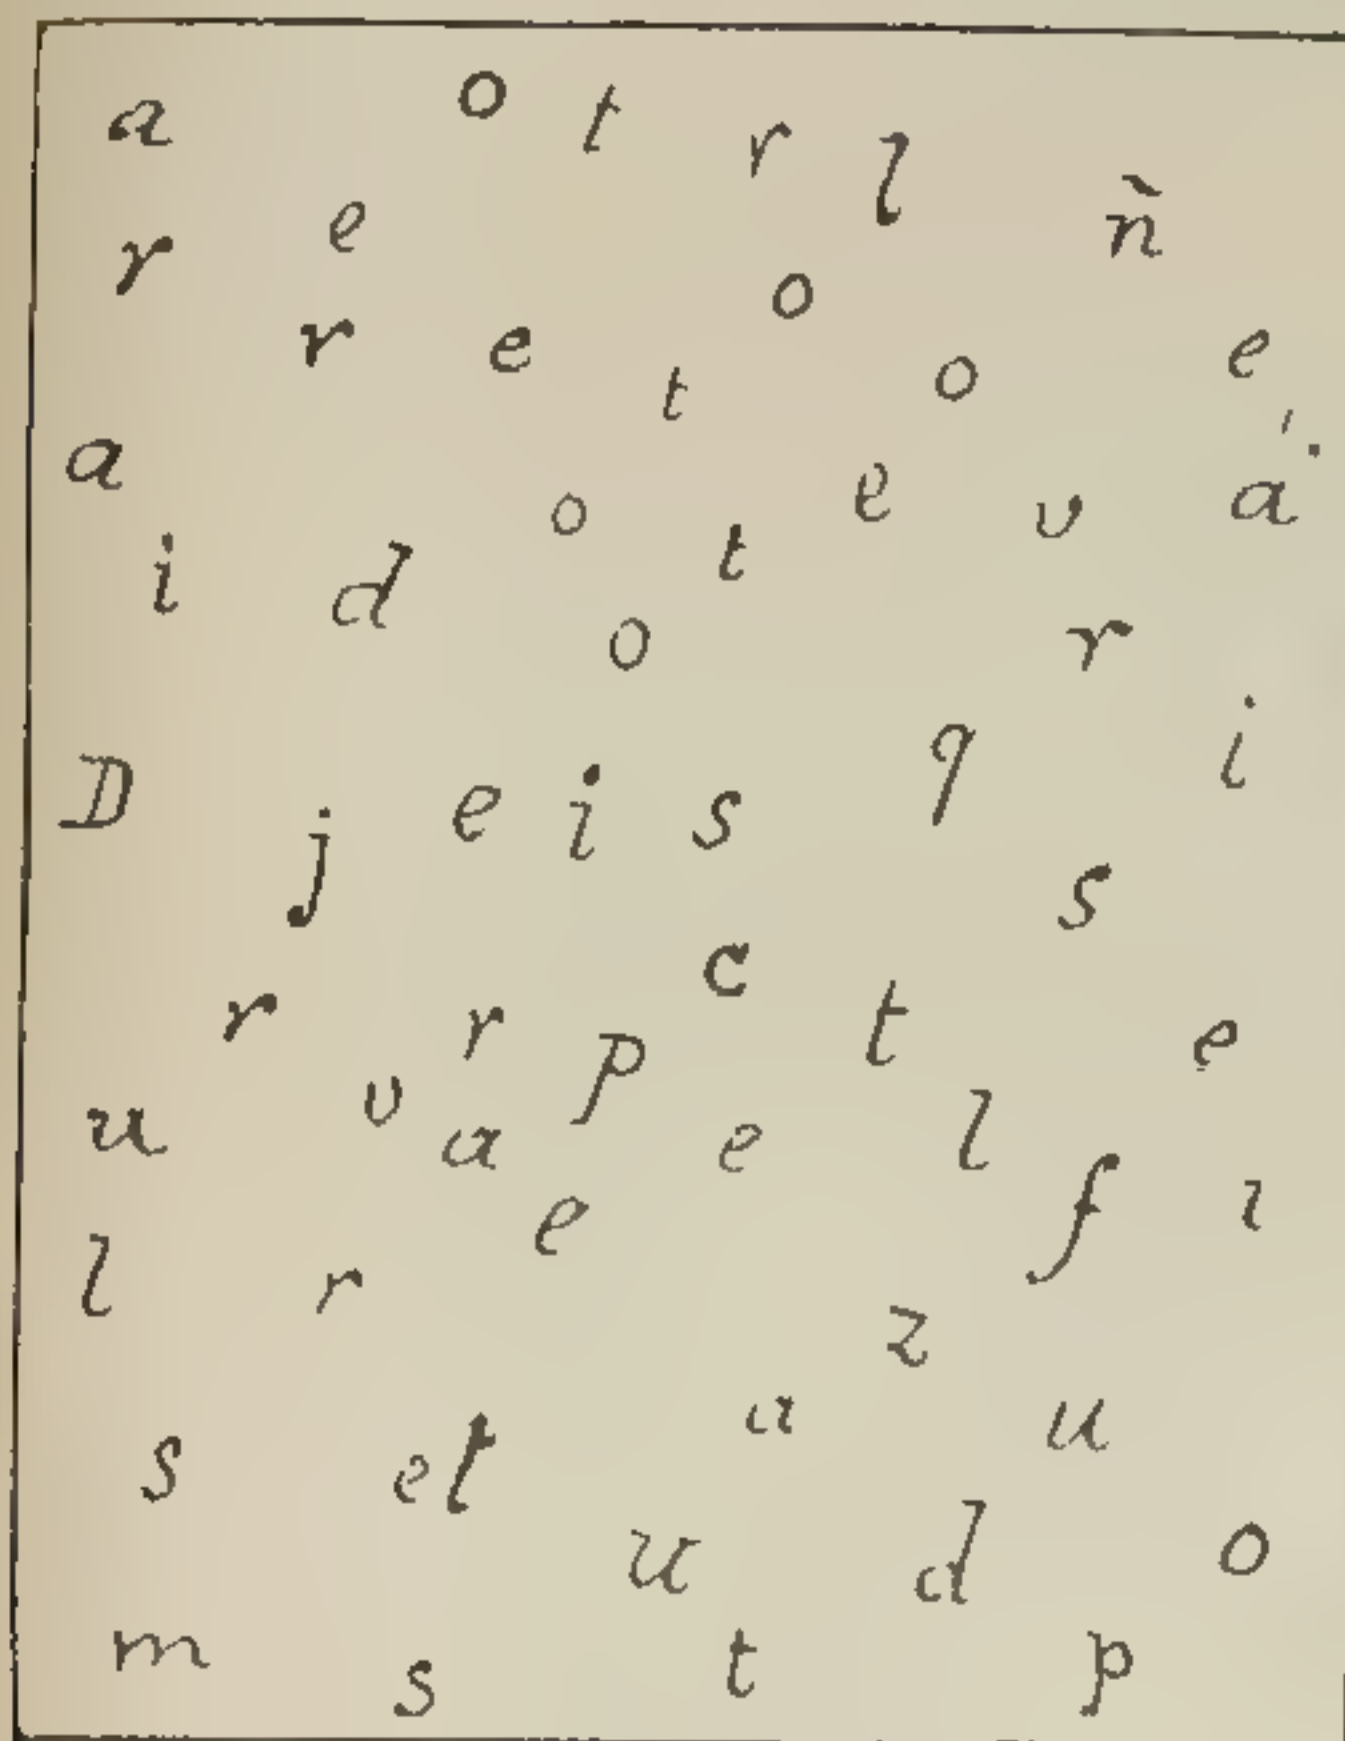 a o t r l ñ
r e o
r e t o e
a o e v á.
i d t
o r
D j e i s q i
s
c
r r p t e
u v a e l
l r e f ı
z
s e t a u
u d o
m s t p